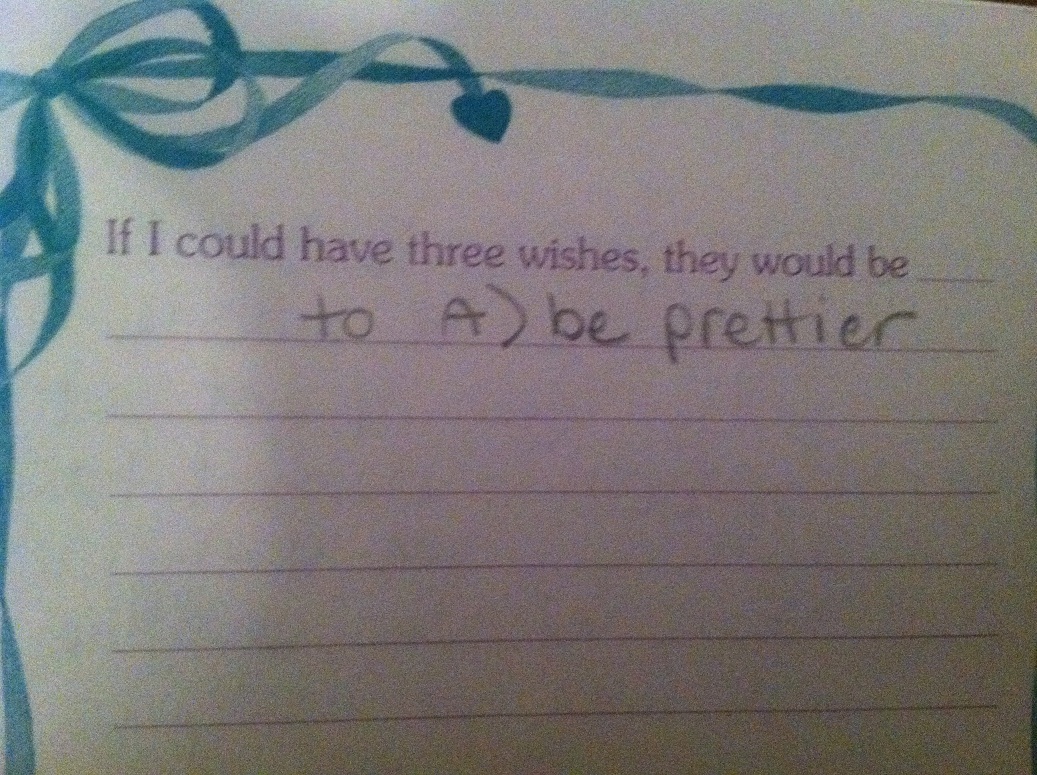 If I could have three wishes, they would be
to A) be prettier